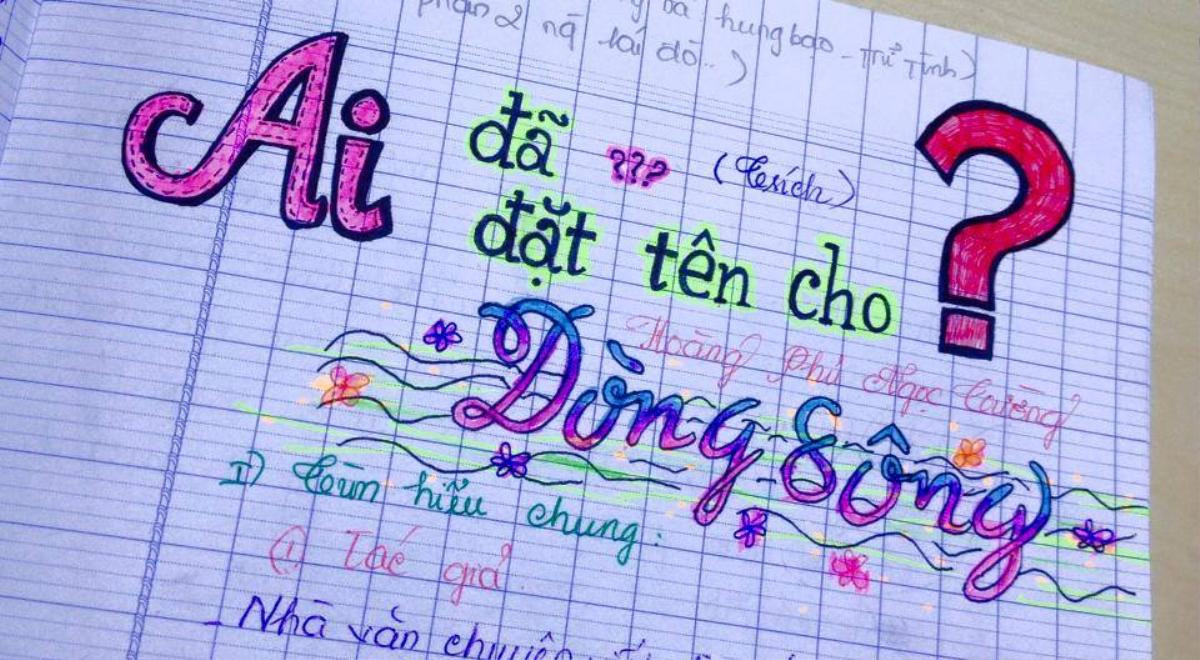 hung bạo - Trữ Tình)
phần 2 nq lái đò..)
Ai đã ??? (Trích)
đặt tên cho ?
Hoàng Phủ Ngọc Tường
Dòng Sông
I) Tìm hiểu chung:
(1. Tác giả
- Nhà văn chuyên về